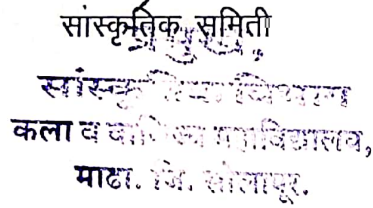 सांस्कृतिक समिती
प्रमुख,
सांस्कृतिक विभाग
कला व वाणिज्य महाविद्यालय,
माढा. जि. सोलापूर.